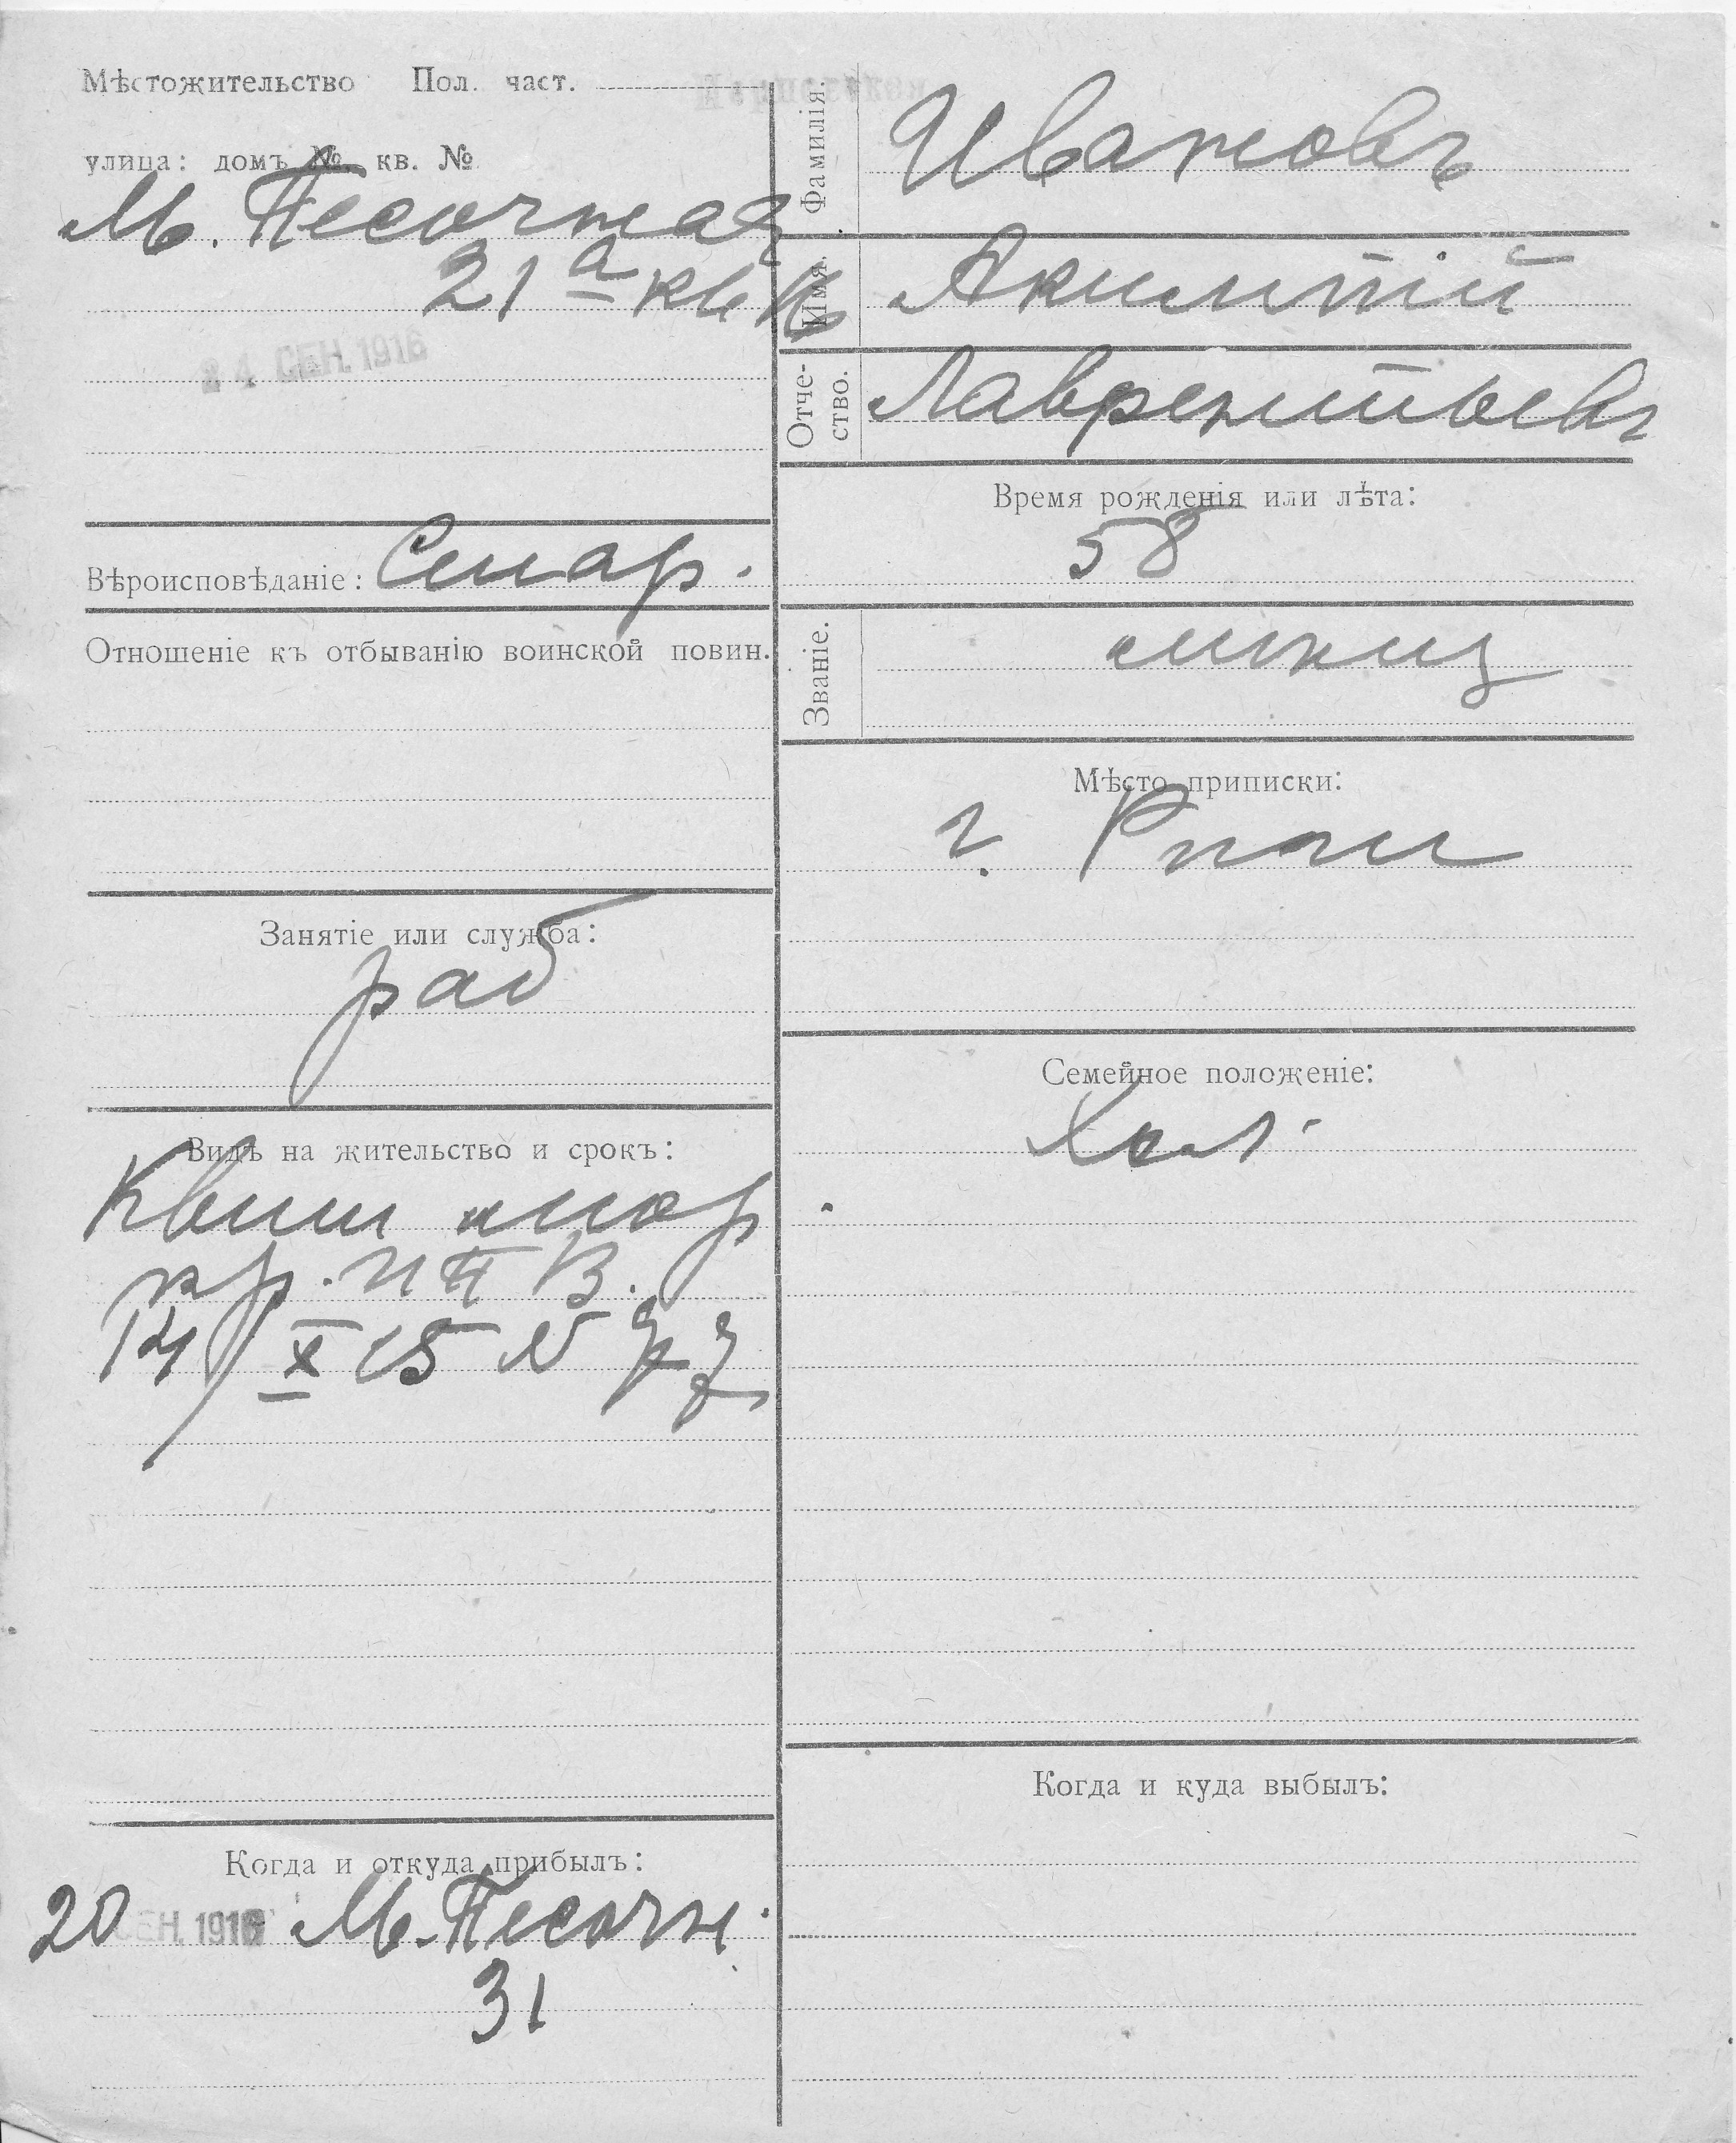 Мѣстожительство Пол. част.
улица: домъ № кв. №
М. Песочная
21а кв
24 СЕН. 1916
Вѣроисповѣданіе: Стар.
Отношеніе къ отбыванію воинской повин.
Занятіе или служба:
раб
Видъ на жительство и срокъ:
Квит
пр.
14 X 15 №
Когда и откуда прибылъ:
20 СЕН. 1916 М. Песочн.
31
Фамилія. Ивановъ
Имя.
Отче-
ство. Лаврентьевъ
Время рожденія или лѣта:
58
Званіе. мѣщ
Мѣсто приписки:
г.
Семейное положеніе:
Хол.
Когда и куда выбылъ: